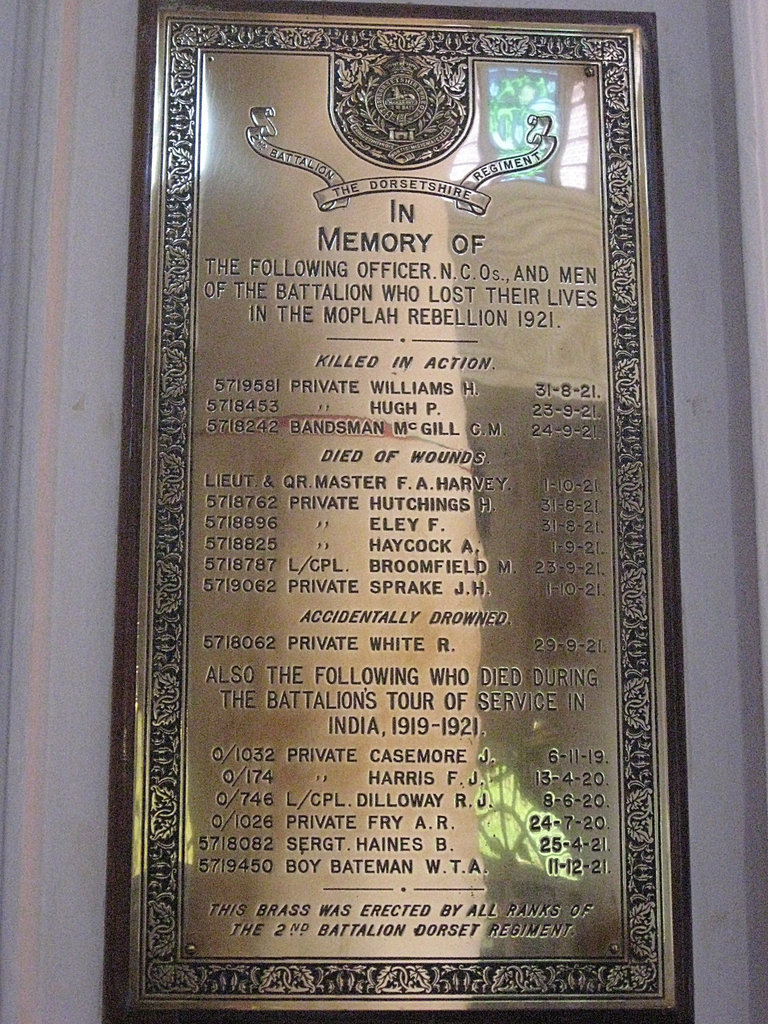 2ND BATTALION THE DORSETSHIRE REGIMENT
IN
MEMORY OF
THE FOLLOWING OFFICER. N.C.Os., AND MEN
OF THE BATTALION WHO LOST THEIR LIVES
IN THE MOPLAH REBELLION 1921.
KILLED IN ACTION.
5719581 PRIVATE WILLIAMS H. 31-8-21.
5718453 " HUGH P. 23-9-21.
5718242 BANDSMAN McGILL C.M. 24-9-21.
DIED OF WOUNDS.
LIEUT. & QR. MASTER F.A. HARVEY. 1-10-21.
5718762 PRIVATE HUTCHINGS H. 31-8-21.
5718896 " ELEY F. 31-8-21.
5718825 " HAYCOCK A. 1-9-21.
5718787 L/CPL. BROOMFIELD M. 23-9-21.
5719062 PRIVATE SPRAKE J.H. 1-10-21.
ACCIDENTALLY DROWNED.
5718062 PRIVATE WHITE R. 29-9-21.
ALSO THE FOLLOWING WHO DIED DURING
THE BATTALION'S TOUR OF SERVICE IN
INDIA, 1919-1921.
0/1032 PRIVATE CASEMORE J. 6-11-19.
0/174 " HARRIS F.J. 13-4-20.
0/746 L/CPL. DILLOWAY R.J. 8-6-20.
0/1026 PRIVATE FRY A.R. 24-7-20.
5718082 SERGT. HAINES B. 25-4-21.
5719450 BOY BATEMAN W.T.A. 11-12-21.
THIS BRASS WAS ERECTED BY ALL RANKS OF
THE 2ND BATTALION DORSET REGIMENT.